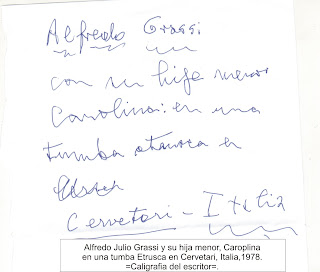 Alfredo Grassi
con su hija menor
Carolina: en una
tumba etrusca en
Cervetari - Italia
Alfredo Julio Grassi y su hija menor, Caroplina
en una tumba Etrusca en Cervetari, Italia,1978.
=Caligrafia del escritor=.